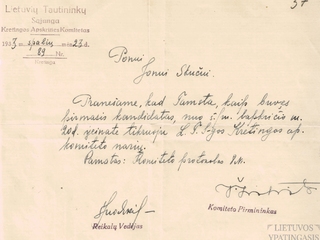 Lietuvių Tautininkų
Sąjunga
Kretingos Apskrities Komitetas
193 m. spalių mėn. 23 d.
89 Nr.
Kretinga
57
Ponui
Jonui
Pranešame, kad Tamsta, kaip buvęs
pirmasis kandidatas, nuo š. m. m.
20 d. įeinate tikruoju L. T. S-gos Kretingos ap.
komiteto nariu.
Pamatas: Komiteto protokolas
Reikalų Vedėjas
Komiteto Pirmininkas
LIETUVOS
YPATINGASIS